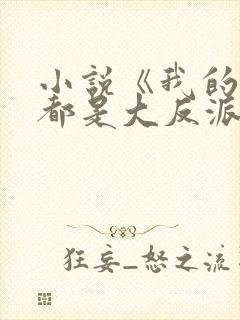 小说《我的
都是大反派
狂妄_怒之流